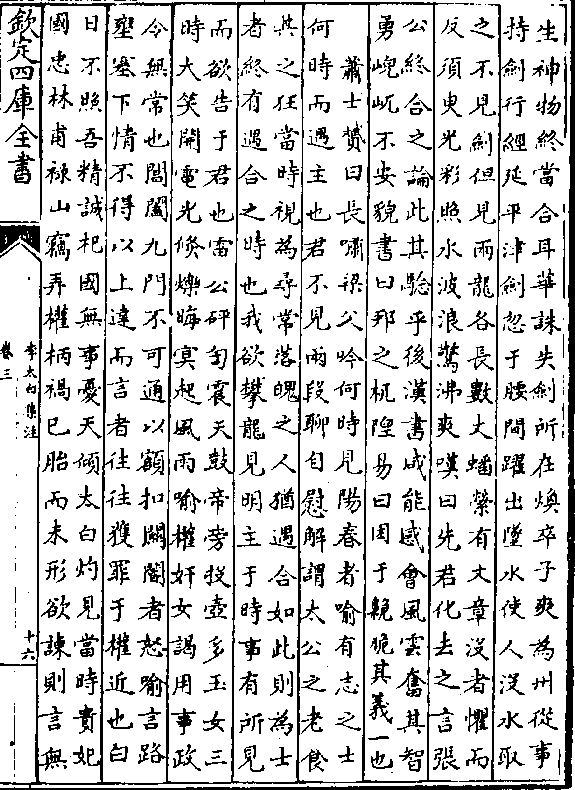 生神物終當合耳華誅失劍所在煥卒子爽為州從事
持劍行經延平津劍忽于腰間躍出墮水使人沒水取
之不見劍但見兩龍各長數丈蟠縈有文章沒者懼而
反須臾光彩照水波浪驚沸爽嘆曰先君化去之言張
公終合之論此其驗乎後漢書咸能感會風雲奮其智
勇㟴屼不安貌書曰邦之杌隉易曰困于臲卼其義一也
蕭士贇曰長嘯梁父吟何時見陽春者喻有志之士
何時而遇主也君不見兩段聊自慰解謂太公之老食
其之狂當時視為尋常落魄之人猶遇合如此則為士
者終有遇合之時也我欲攀龍見明主于時事有所見
而欲告于君也雷公砰訇震天鼓帝旁投壺多玉女三
時大笑開電光倏爍晦冥起風雨喻權奸女謁用事政
令無常也閶闔九門不可通以額扣關閽者怒喻言路
壅塞下情不得以上達而言者往往獲罪于權近也白
日不照吾精誠杞國無事憂天傾太白灼見當時貴妃
國忠林甫祿山竊弄權柄禍已胎而未形欲諫則言無
欽定四庫全書
李太白集注
卷三
十六